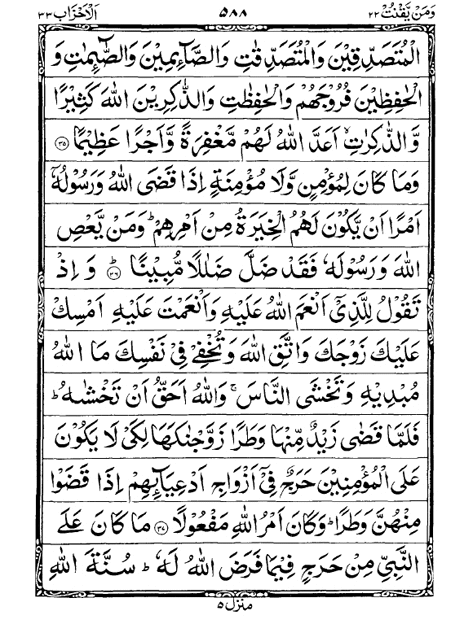 وَمَنْ يَّقْنُتْ ٢٢ ٥٨٨ اَلْاَحْزَاب ٣٣
الْمُتَصَدِّقِيْنَ وَالْمُتَصَدِّقٰتِ وَالصَّآئِمِيْنَ وَالصّٰٓئِمٰتِ وَ
الْحٰفِظِيْنَ فُرُوْجَهُمْ وَالْحٰفِظٰتِ وَالذّٰكِرِيْنَ اللّٰهَ كَثِيْرًا
وَّالذّٰكِرٰتِ ۙ اَعَدَّ اللّٰهُ لَهُمْ مَّغْفِرَةً وَّاَجْرًا عَظِيْمًا ﴿٣٥﴾
وَمَا كَانَ لِمُؤْمِنٍ وَّلَا مُؤْمِنَةٍ اِذَا قَضَى اللّٰهُ وَرَسُوْلُهٗٓ
اَمْرًا اَنْ يَّكُوْنَ لَهُمُ الْخِيَرَةُ مِنْ اَمْرِهِمْ ؕ وَمَنْ يَّعْصِ
اللّٰهَ وَرَسُوْلَهٗ فَقَدْ ضَلَّ ضَلٰلًا مُّبِيْنًا ﴿٣٦﴾ؕ وَاِذْ
تَقُوْلُ لِلَّذِيْٓ اَنْعَمَ اللّٰهُ عَلَيْهِ وَاَنْعَمْتَ عَلَيْهِ اَمْسِكْ
عَلَيْكَ زَوْجَكَ وَاتَّقِ اللّٰهَ وَتُخْفِيْ فِيْ نَفْسِكَ مَا اللّٰهُ
مُبْدِيْهِ وَتَخْشَى النَّاسَ ۚ وَاللّٰهُ اَحَقُّ اَنْ تَخْشٰىهُ ؕ
فَلَمَّا قَضٰى زَيْدٌ مِّنْهَا وَطَرًا زَوَّجْنٰكَهَا لِكَيْ لَا يَكُوْنَ
عَلَى الْمُؤْمِنِيْنَ حَرَجٌ فِيْٓ اَزْوَاجِ اَدْعِيَآئِهِمْ اِذَا قَضَوْا
مِنْهُنَّ وَطَرًا ؕ وَكَانَ اَمْرُ اللّٰهِ مَفْعُوْلًا ﴿٣٧﴾ مَا كَانَ عَلَى
النَّبِيِّ مِنْ حَرَجٍ فِيْمَا فَرَضَ اللّٰهُ لَهٗ ؕ سُنَّةَ اللّٰهِ
منزل ٥